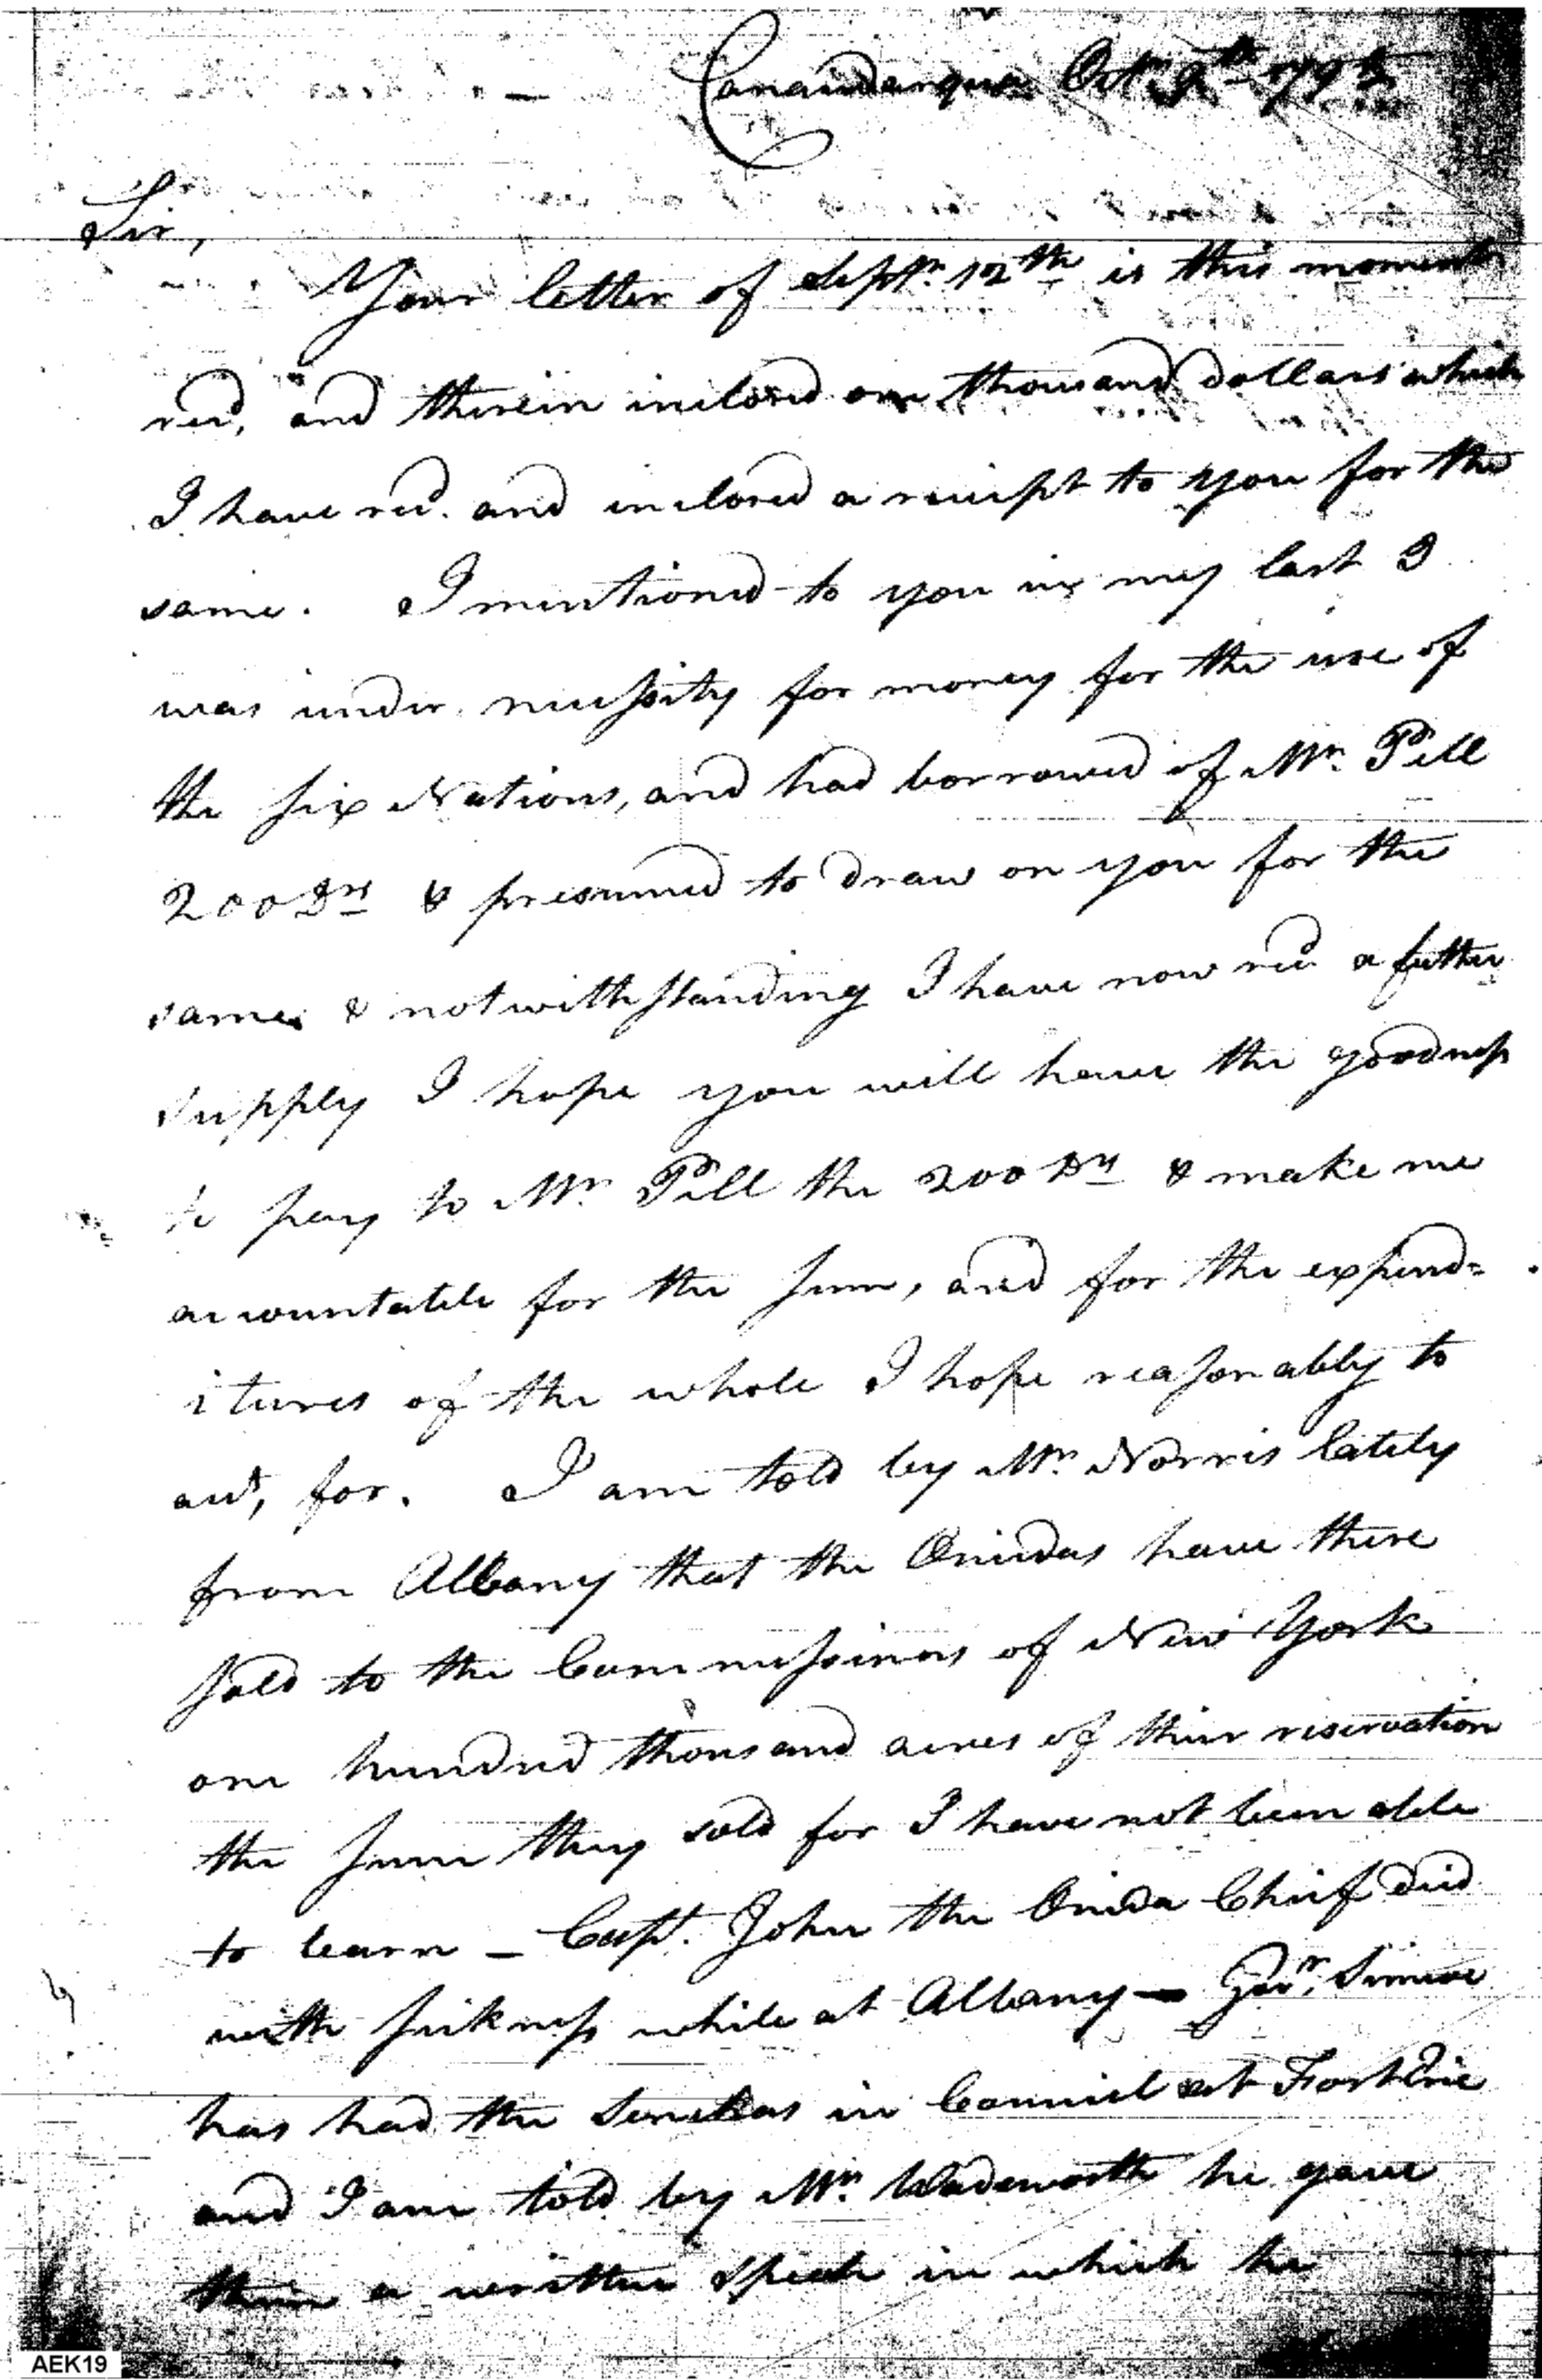 Canandarqua Octr. 9th 1795
Sir,
Your letter of Septr. 12th is this moment
recd, and therein inclosed one thousand dollars which
I have recd. and inclosed a receipt to you for the
same. I mentioned to you in my last I
was under necessity for money for the use of
the six Nations, and had borrowed of Mr. Pill
200 Drs & presumed to draw on you for the
same & notwithstanding I have now recd a futher
supply I hope you will have the goodness
to pay to Mr. Pill the 200 Drs & make me
accountable for the sum, and for the expend=
itures of the whole I hope reasonably to
acct, for. I am told by Mr. Norris lately
from Albany that the Oniedas have there
sold to the Commissiners of New York
one hundred thousand acres of thier reservation
the sum they sold for I have not been able
to learn – Capt. John the Onieda Chief died
with sickness while at Albany – Govr. Simcoe
has had the Senekas in Council at Fort Erie
and I am told by Mr. Wadsworth he gave
them a written speech in which he
AEK19